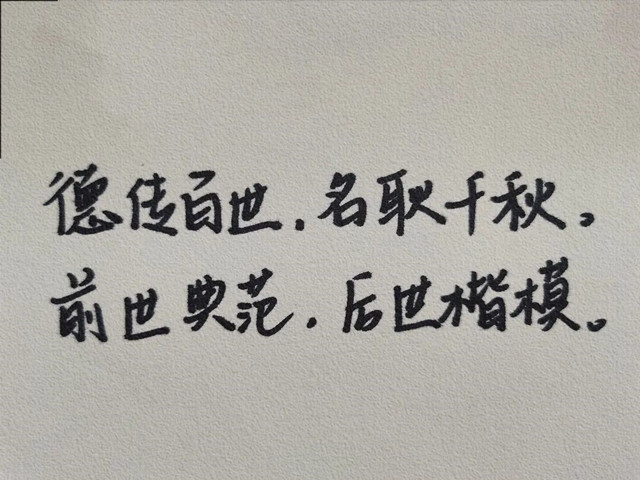 德传百世，名耿千秋。
前世典范，后世楷模。